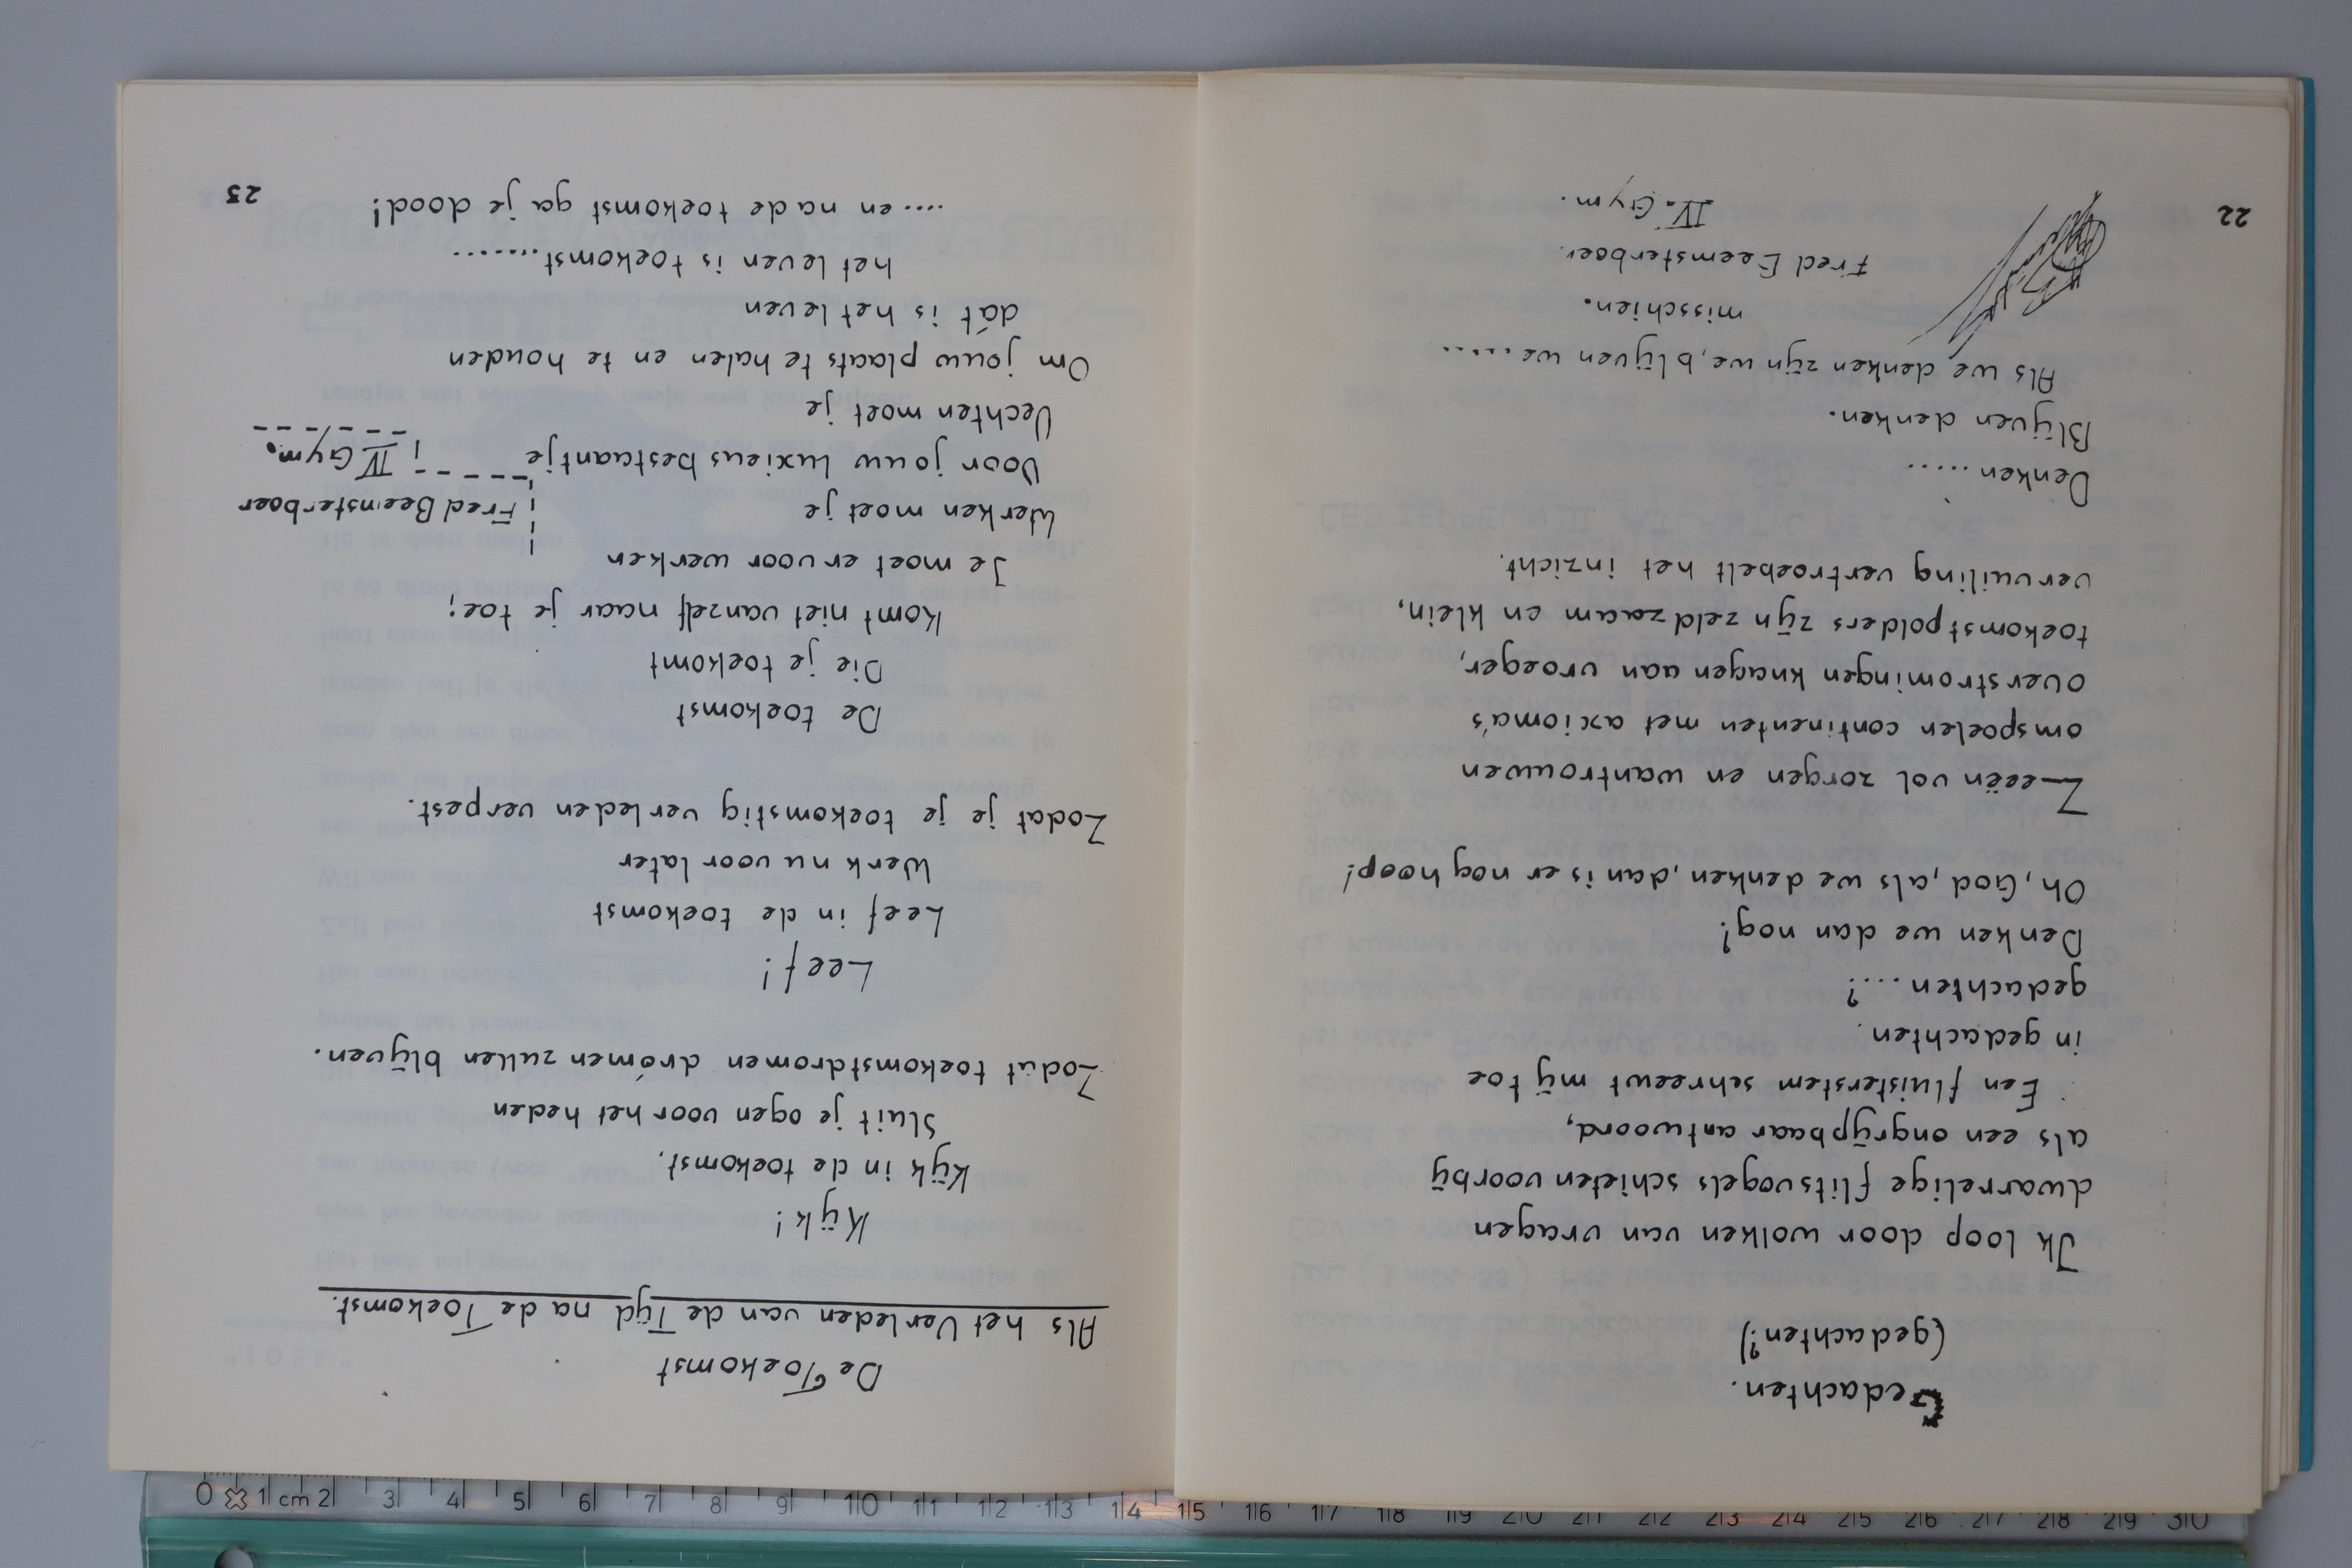 Gedachten.
(gedachten?)
Ik loop door wolken van vragen
dwarrelige flitsvogels schieten voorbij
als een ongrijpbaar antwoord,
Een fluisterstem schreewt mij toe
in gedachten.
gedachten....?
Denken we dan nog?
Oh, God, als we denken, dan is er nog hoop!
Zeeën vol zorgen en wantrouwen
omspoelen continenten met axioma's
overstromingen knagen aan vroeger,
toekomstpolders zijn zeldzaam en klein,
vervuiling vertroebelt het inzicht.
Denken.....
Blijven denken.
Als we denken zijn we, blijven we.....
misschien.
Fred Eeemsterboer.
IV. Gym.
22
De Toekomst
Als het Verleden van de Tijd na de Toekomst.
Kijk!
Kijk in de toekomst,
Sluit je ogen voor het heden
Zodat toekomstdromen drómen zullen blijven.
Leef!
Leef in de toekomst
Werk nu voor later
Zodat je je toekomstig verleden verpest.
De toekomst
Die je toekomt
Komt niet vanzelf naar je toe;
Je moet ervoor werken
Werken moet je
Voor jouw luxieus bestaantje
Vechten moet je
Om jouw plaats te halen en te houden
dát is het leven
het leven is toekomst.......
....en na de toekomst ga je dood!
Fred Beemsterboer
IV Gym.
23
0 1 cm 2 3 4 5 6 7 8 9 10 11 12 13 14 15 16 17 18 19 20 21 22 23 24 25 26 27 28 29 30